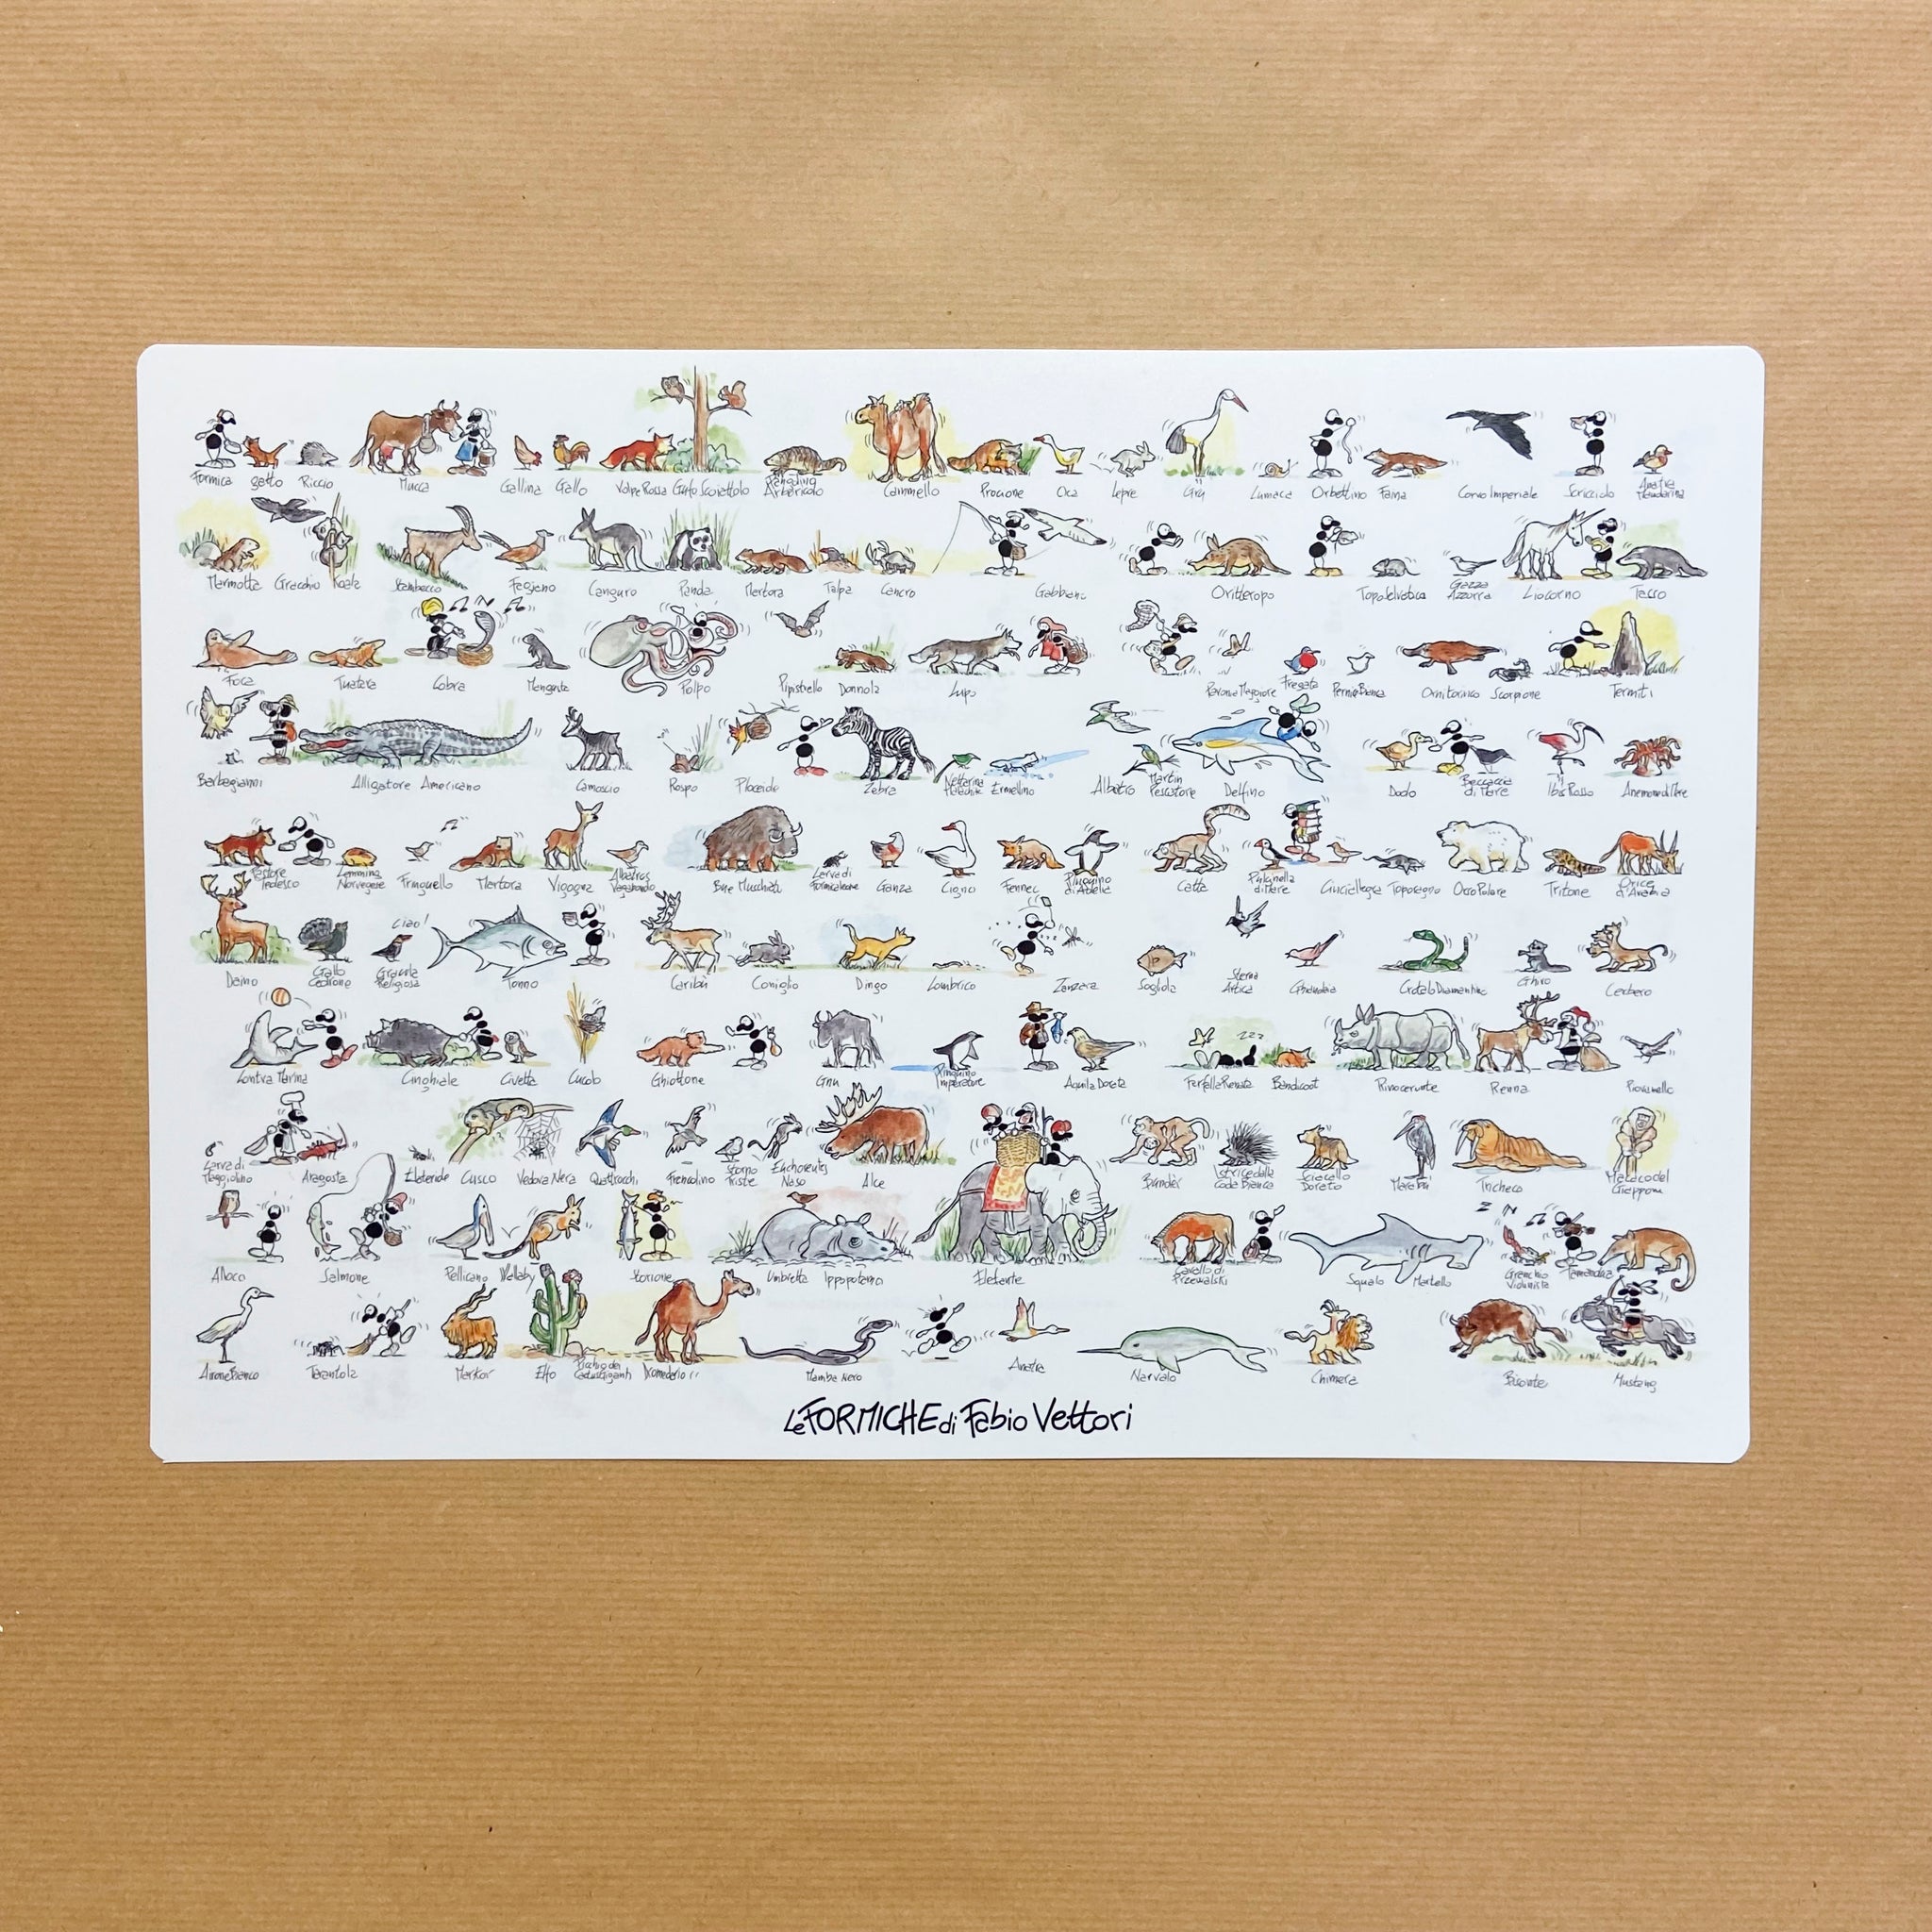 Formica gatto Riccio Mucca Gallina Gallo Volpe Rossa Gufo Scoiattolo Pangolino Arboricolo Cammello Procione Oca Lepre Gru Lumaca Orbettino Faina Corvo Imperiale Scricciolo Anatra Mandarina
Marmotta Gracchio Koala Stambecco Fagiano Canguro Panda Martora Talpa Cancro Gabbiano Oritteropo Topo Selvatico Gazza Azzurra Liocorno Tasso
Foca Tuatara Cobra Mangusta Polpo Pipistrello Donnola Lupo Pavona Maggiore Fregata Pernice Bianca Ornitorinco Scorpione Termiti
Barbagianni Alligatore Americano Camoscio Rospo Ploceido Zebra Ermellino Albatro Martin Pescatore Delfino Dodo Beccaccia di Mare Ibis Rosso Anemone di Mare
Pastore Tedesco Lemming Norvegese Fringuello Martora Vigogna Albatros Vagabondo Bue Muschiato Larva di Formicaleone Ganza Cigno Fennec Pinguino di Adelia Catta Pulcinella di Mare Cinciallegra Toporagno Orso Polare Tritone Orice d'Arabia
Ciao!
Daino Gallo Cedrone Gracula Religiosa Tonno Caribù Coniglio Dingo Lombrico Zanzara Sogliola Sterna Artica Crotalo Diamantino Ghiro Cerbero
Lontra Marina Cinghiale Civetta Cucolo Ghiottone Gnu Pinguino Imperatore Aquila Dorata zzz Farfalla Renata Bandicoot Rinoceronte Renna Piovanello
Larva di Maggiolino Aragosta Elateride Cusco Vedova Nera Quattrocchi Francolino Storno Triste Alce Istrice dalla Coda Bianca Sciacallo Dorato Marabù Tricheco Macaco del Giappone
Allocco Salmone Pellicano Wallaby Storione Umbretta Ippopotamo Elefante Cavallo di Przewalski Squalo Martello Granchio Violinista Tamandua
Airone Bianco Tarantola Markor Elfo Picchio dei Cactus Giganti Dromedario Mamba Nero Anatra Narvalo Chimera Bisonte Mustang
Le FORMICHE di Fabio Vettori